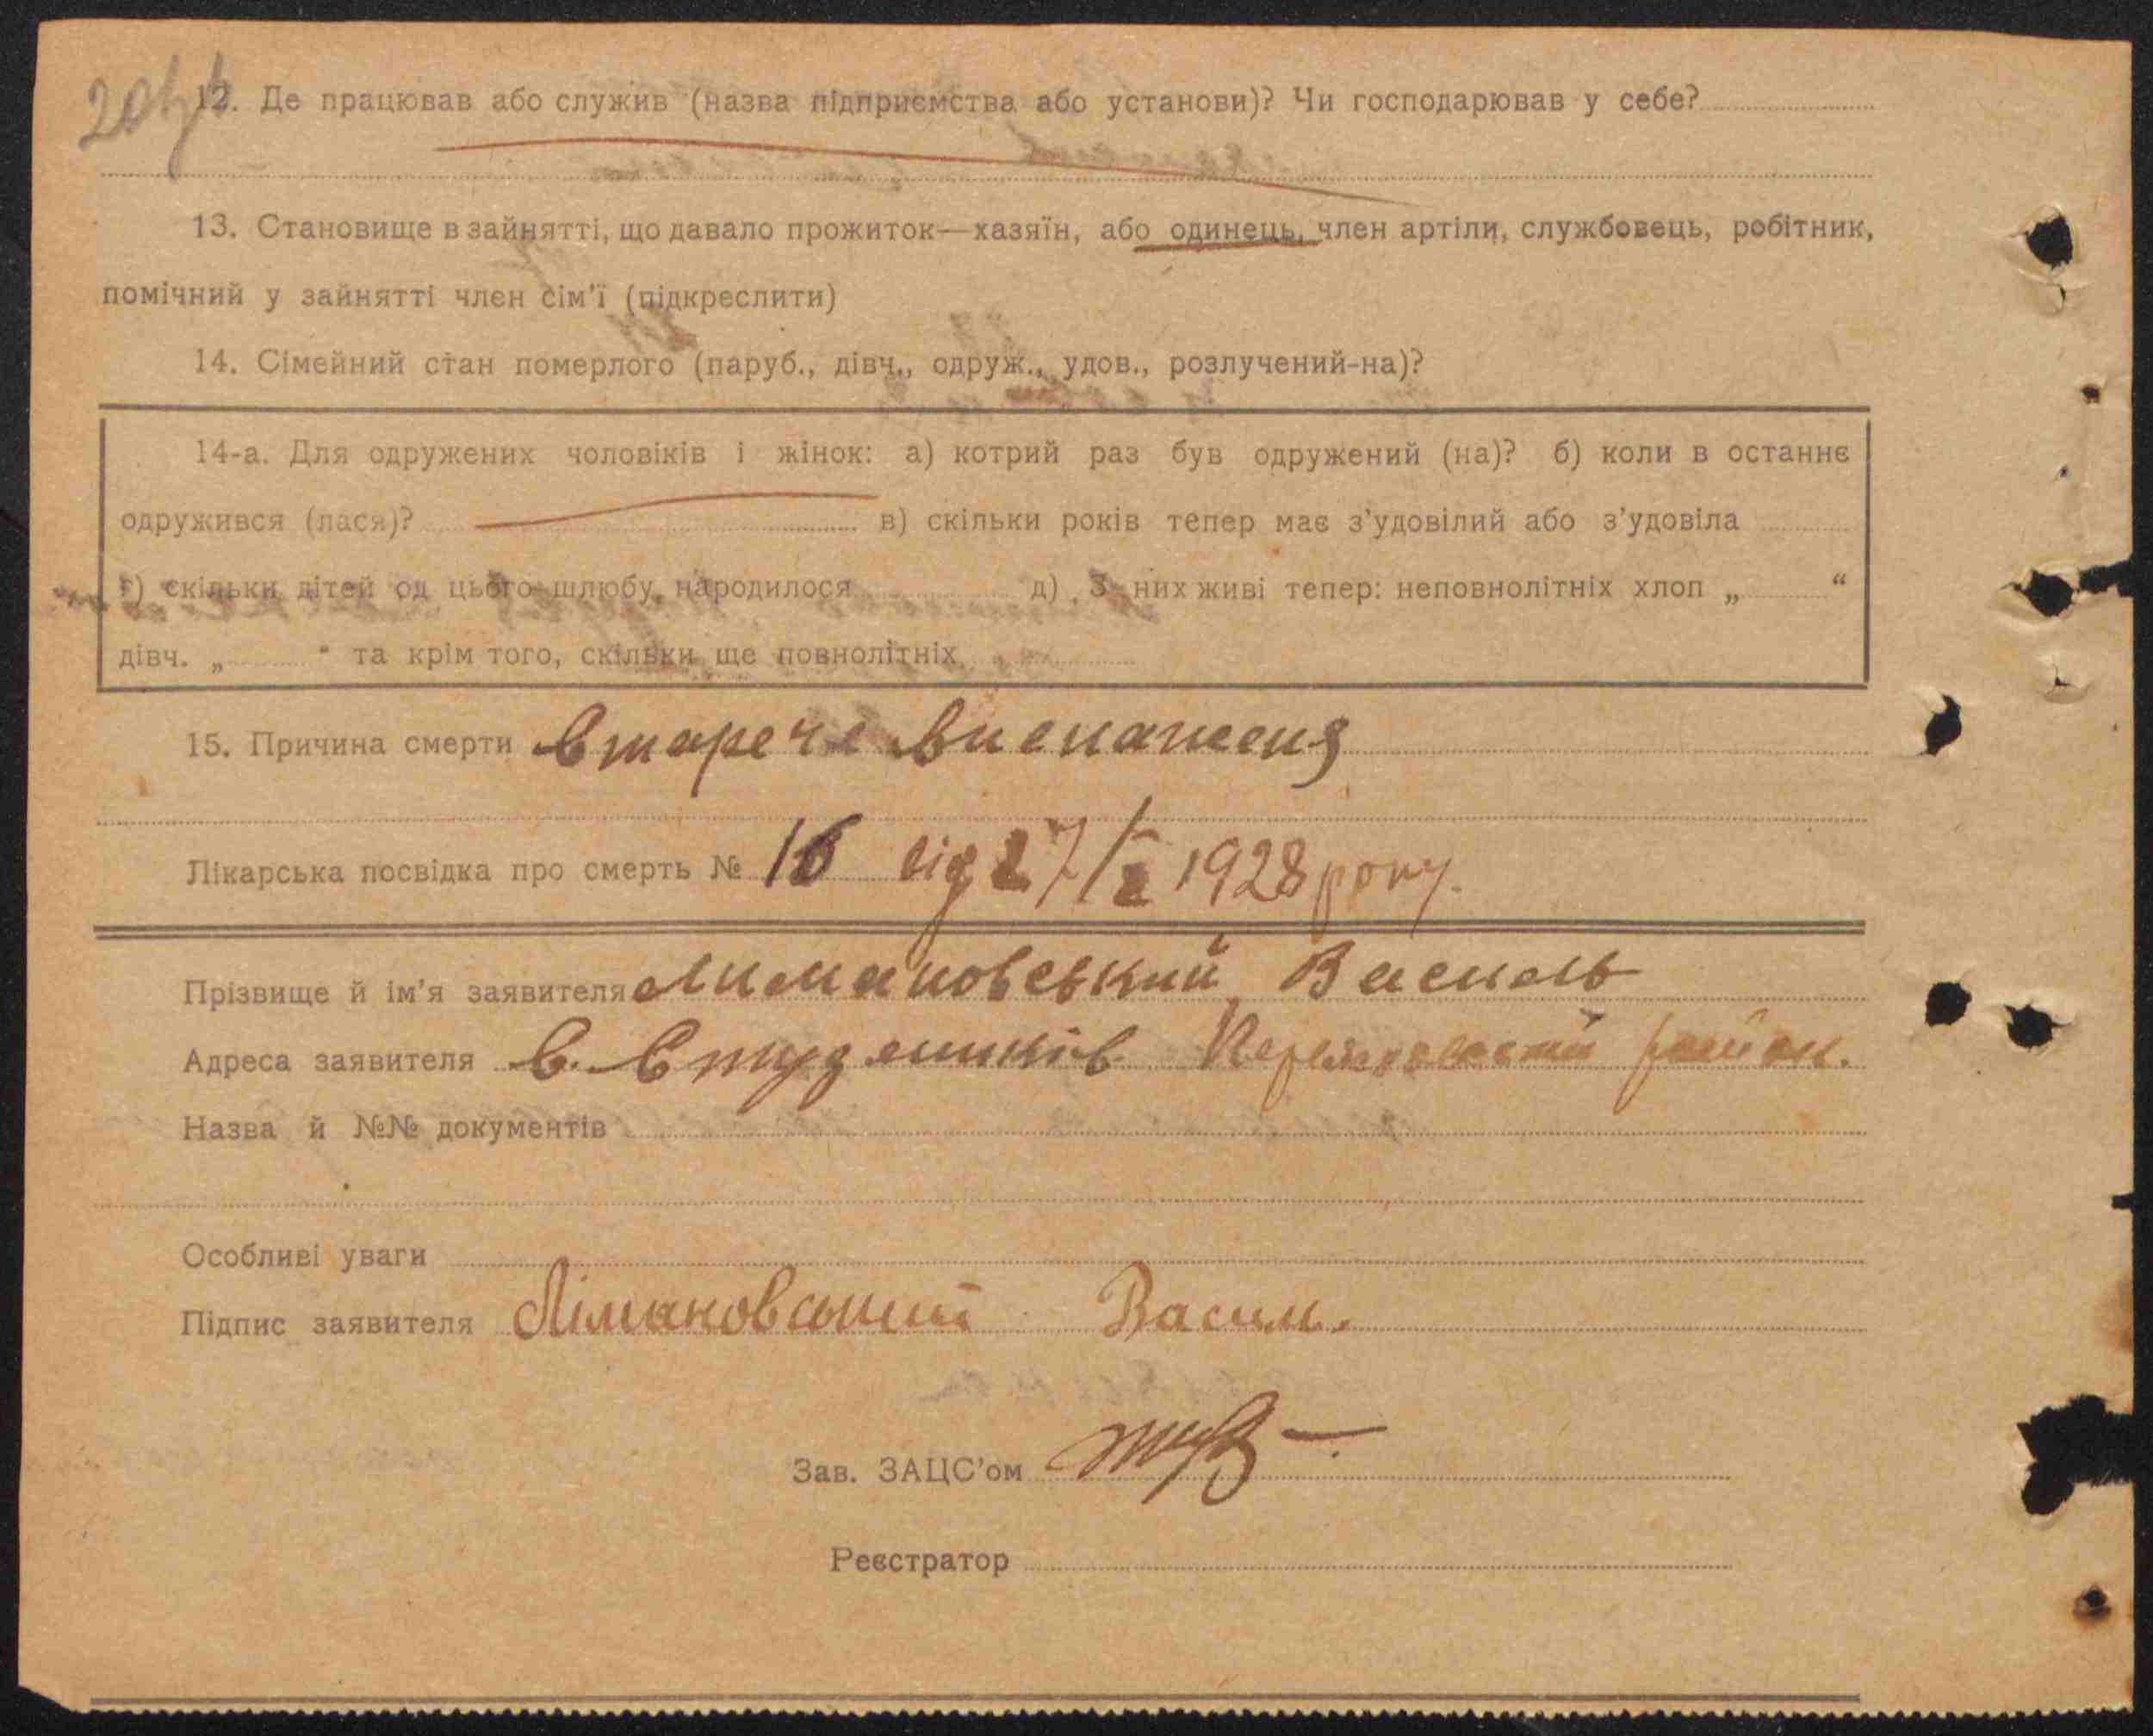 12. Де працював або служив (назва підприємства або установи)? Чи господарював у себе?
13. Становище в зайнятті, що давало прожиток—хазяїн, або одинець, член артіли, службовець, робітник,
помічний у зайнятті член сім'ї (підкреслити)
14. Сімейний стан померлого (паруб., дівч., одруж., удов., розлучений-на)?
14-а. Для одружених чоловіків і жінок: а) котрий раз був одружений (на)? б) коли в останнє
одружився (лася)? в) скільки років тепер має з'удовілий або з'удовіла
г) скільки дітей од цього шлюбу народилося д) З них живі тепер: неповнолітніх хлоп „ “
дівч. „ “ та крім того, скільки ще повнолітніх
15. Причина смерти Старече виснаженя
Лікарська посвідка про смерть № 16 від 27/ 1928 року.
Прізвище й ім'я заявителя Лимановський Василь
Адреса заявителя С. Студеників район.
Назва й №№ документів
Особливі уваги
Підпис заявителя Лімановський Васил.
Зав. ЗАЦС'ом
Реєстратор